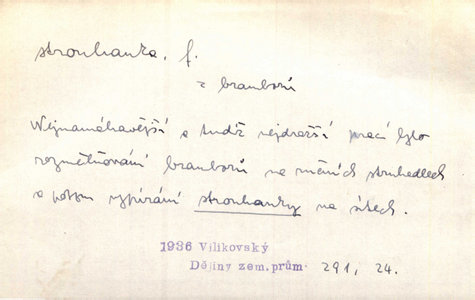 strouhanka, f.
z bramborů
Nejnamáhavější a tudíž nejdražší prací bylo
rozmělňování bramborů na ručních struhadlech
a potom vypírání strouhanky na sítech.
1936 Vilikovský
Dějiny zem. prům. 291, 24.